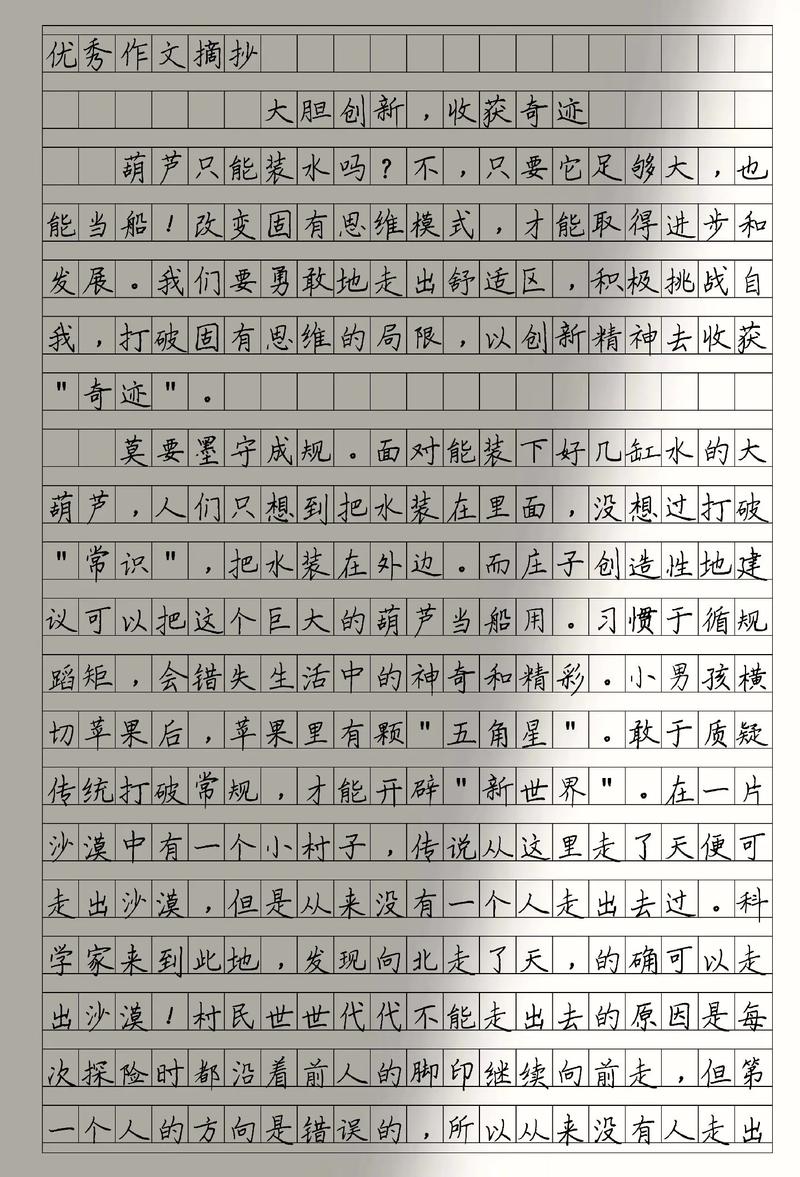 优秀作文摘抄
大胆创新，收获奇迹
葫芦只能装水吗？不，只要它足够大，也
能当船！改变固有思维模式，才能取得进步和
发展。我们要勇敢地走出舒适区，积极挑战自
我，打破固有思维的局限，以创新精神去收获
"奇迹"。
莫要墨守成规。面对能装下好几缸水的大
葫芦，人们只想到把水装在里面，没想过打破
"常识"，把水装在外边。而庄子创造性地建
议可以把这个巨大的葫芦当船用。习惯于循规
蹈矩，会错失生活中的神奇和精彩。小男孩横
切苹果后，苹果里有颗"五角星"。敢于质疑
传统打破常规，才能开辟"新世界"。在一片
沙漠中有一个小村子，传说从这里走了天便可
走出沙漠，但是从来没有一个人走出去过。科
学家来到此地，发现向北走了天，的确可以走
出沙漠！村民世世代代不能走出去的原因是每
次探险时都沿着前人的脚印继续向前走，但第
一个人的方向是错误的，所以从来没有人走出